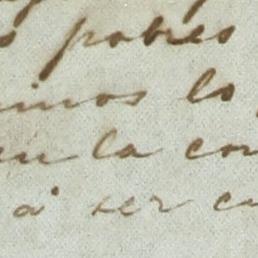 s pobres
imos lo
en la con
á ser cu